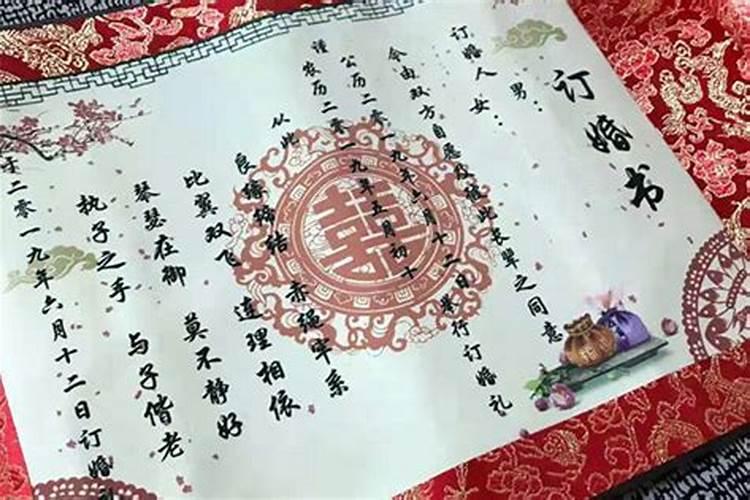 订婚书
男：
订婚人 女：
今由双方自愿及彼此长辈之同意
谨 公历二零一九年六月十二日举行订婚礼
农历二零一九年五月初十
从此
良缘缔结 赤绳牢系
比翼双飞 连理相依
琴瑟在御 莫不静好
执子之手 与子偕老
于二零一九年六月十二日订婚